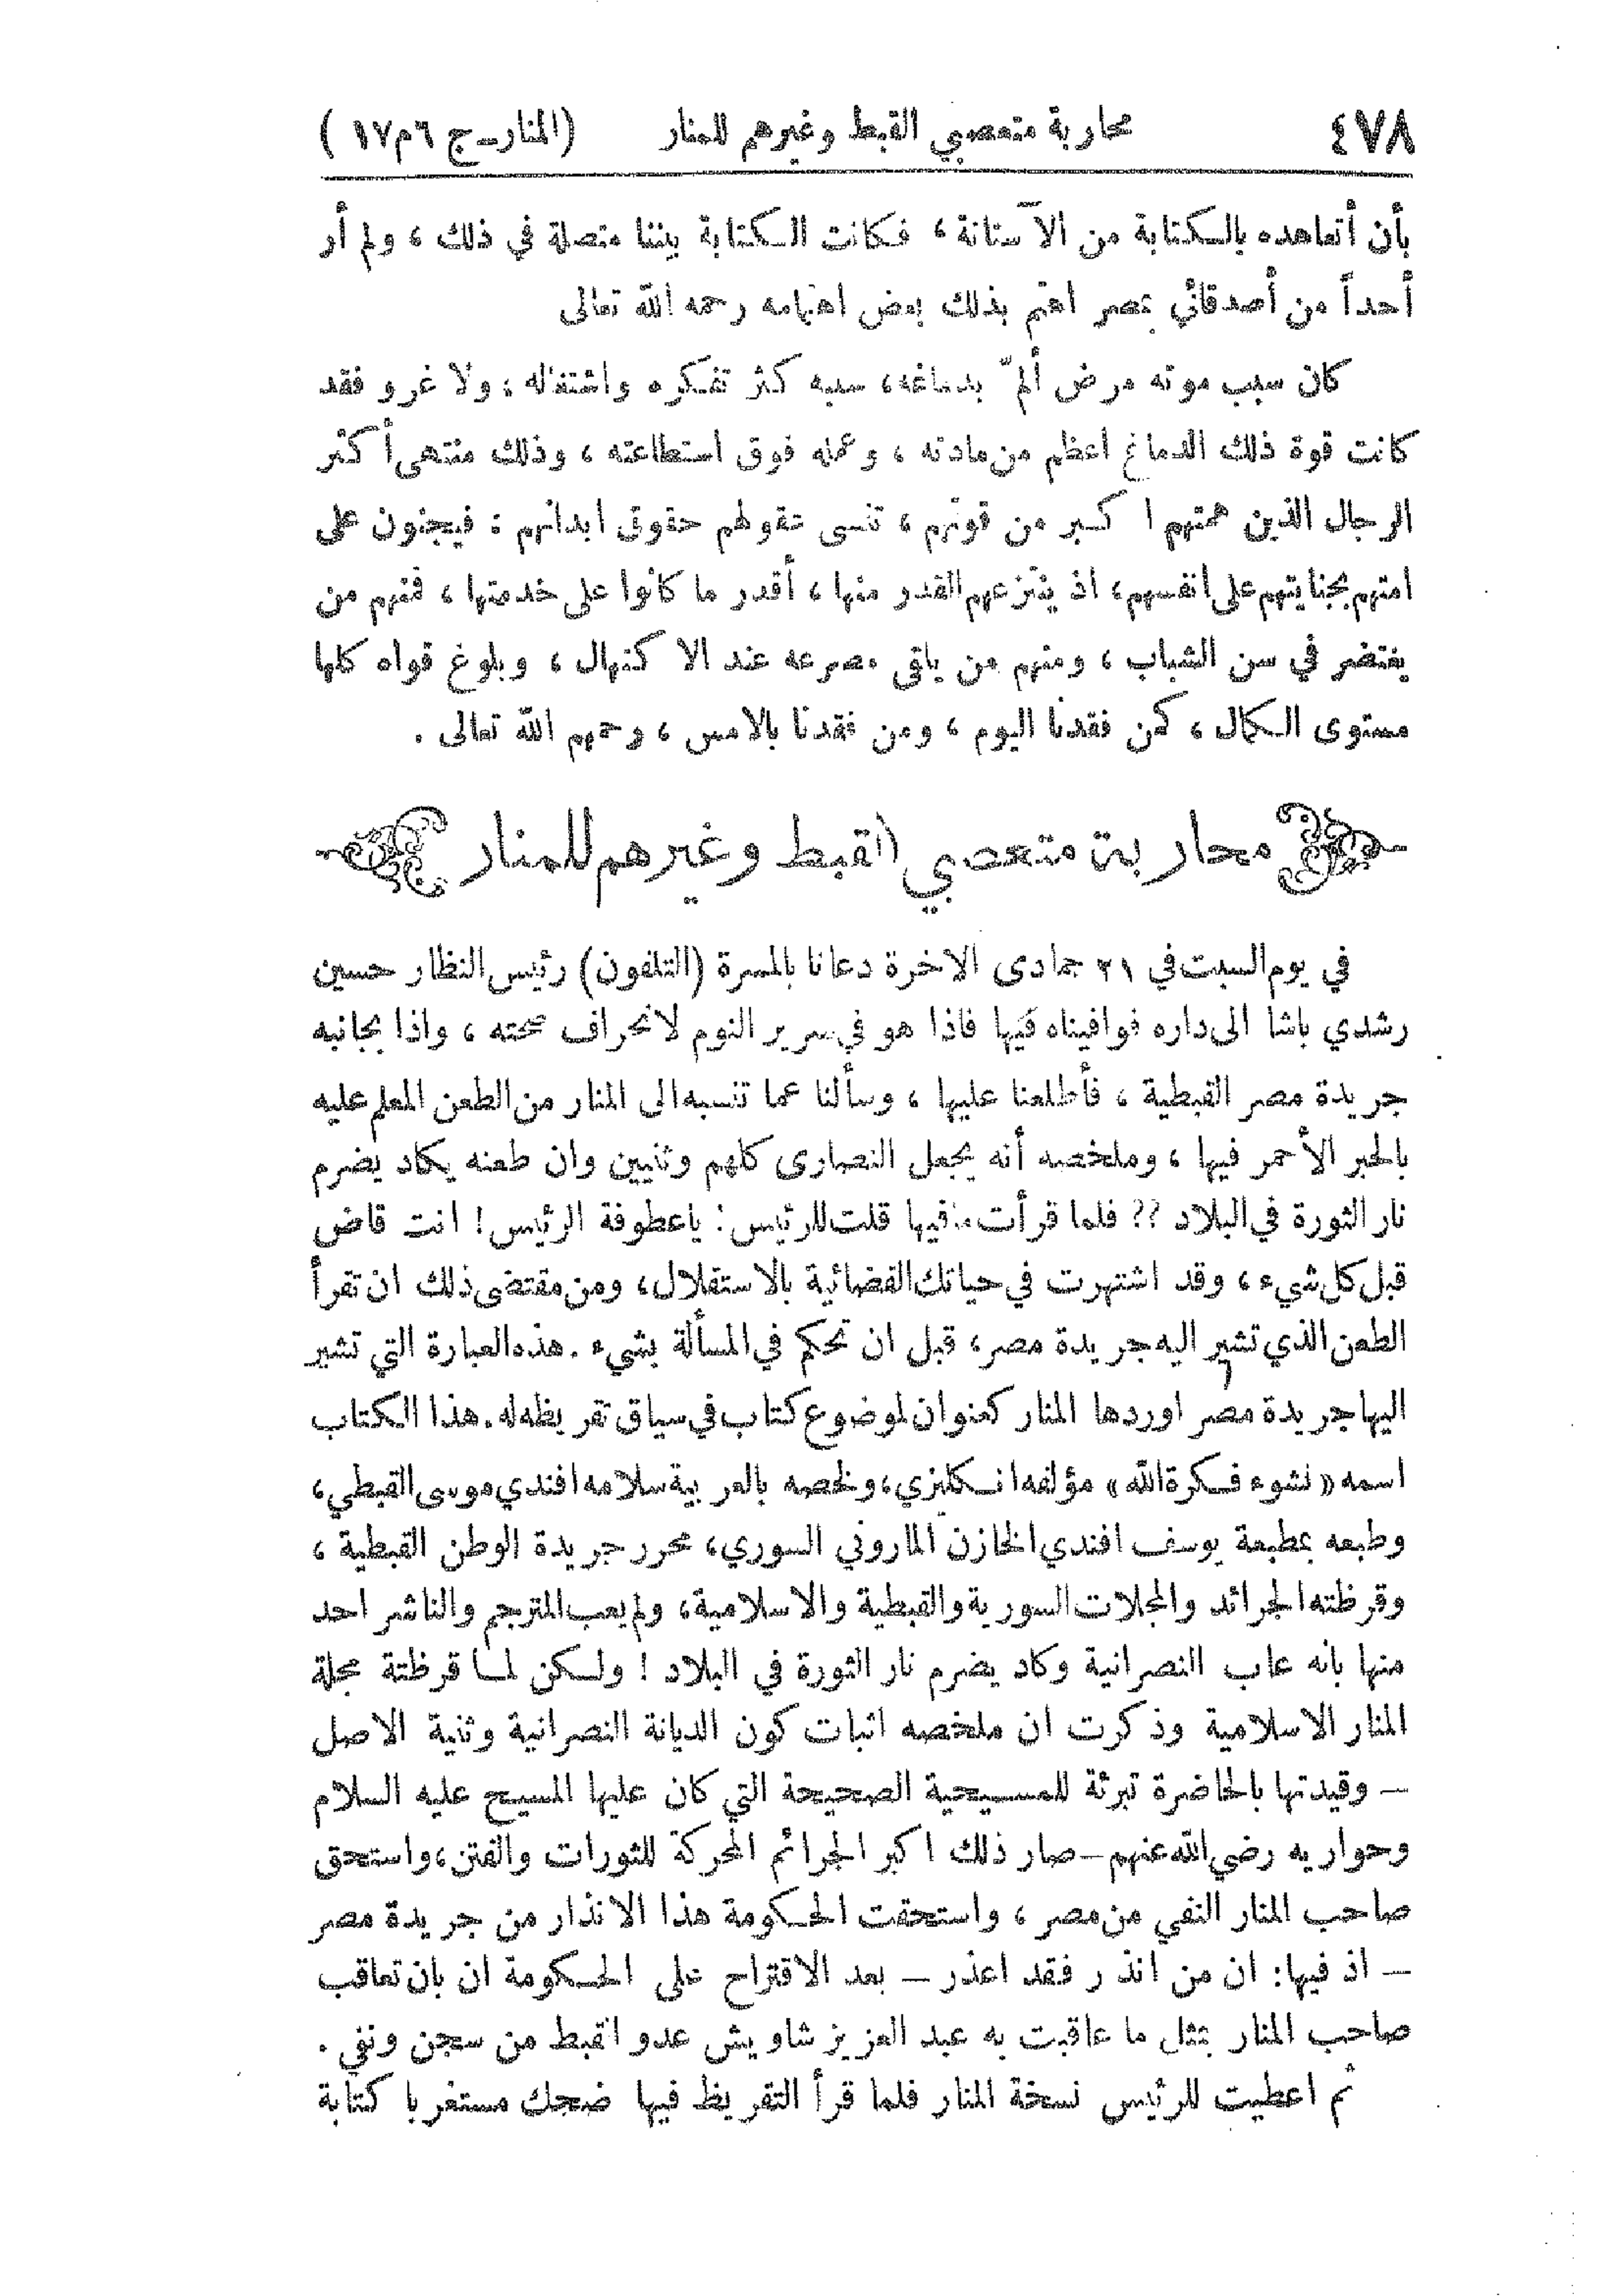 ٤٧٨ محاربة متعصبي القبط وغيرهم للمنار (المنار ـ ج ٦ م ١٧ )
بأن أتعاهده بالكتابة من الآستانة ، فكانت الكتابة بيننا متصلة في ذلك ، ولم أر
أحداً من أصدقائي بمصر اهتم بذلك بعض اهتمامه رحمه الله تعالى
كان سبب موته مرض ألمّ بدماغه، سببه كثر تفكره واشتغاله ، ولا غرو فقد
كانت قوة ذلك الدماغ اعظم من مادته ، وعمله فوق استطاعته ، وذلك منتهى أكثر
الرجال الذين همتهم اكبر من قوتهم ، تنسى عقولهم حقوق ابدانهم : فيجنون على
امتهم بجنايتهم على انفسهم، اذ ينتزعهم القدر منها ، أقدر ما كانوا على خدمتها ، فمنهم من
يختضر في سن الشباب ، ومنهم من يلقى مصرعه عند الاكتهال ، وبلوغ قواه كلها
مستوى الكمال ، كمن فقدنا اليوم ، ومن فقدنا بالامس ، رحمهم الله تعالى .
محاربة متعصبي القبط وغيرهم للمنار
في يوم السبت في ٢١ جمادى الآخرة دعانا بالمسرة (التلفون) رئيس النظار حسين
رشدي باشا الى داره فوافيناه فيها فاذا هو في سرير النوم لانحراف صحته ، واذا بجانبه
جريدة مصر القبطية ، فأطلعنا عليها ، وسألنا عما تنسبه الى المنار من الطعن المعلم عليه
بالحبر الأحمر فيها ، وملخصه أنه يجعل النصارى كلهم وثنيين وان طعنه يكاد يضرم
نار الثورة في البلاد ؟؟ فلما قرأت ما فيها قلت للرئيس : ياعطوفة الرئيس ! انت قاض
قبل كل شيء ، وقد اشتهرت في حياتك القضائية بالاستقلال، ومن مقتضى ذلك ان تقرأ
الطعن الذي تشير اليه جريدة مصر، قبل ان تحكم في المسألة بشيء . هذه العبارة التي تشير
اليها جريدة مصر اوردها المنار كعنوان لموضوع كتاب في سياق تقريظه له . هذا الكتاب
اسمه « نشوء فكرة الله » مؤلفه انكليزي، ولخصه بالعربية سلامه افندي موسى القبطي،
وطبعه بمطبعة يوسف افندي الخازن الماروني السوري، محرر جريدة الوطن القبطية ،
وقرظته الجرائد والمجلات السورية والقبطية والاسلامية، ولم يعب المترجم والناشر احد
منها بانه عاب النصرانية وكاد يضرم نار الثورة في البلاد ! ولكن لما قرظتة مجلة
المنار الاسلامية وذكرت ان ملخصه اثبات كون الديانة النصرانية وثنية الاصل
ـ وقيدتها بالحاضرة تبرئة للمسيحية الصحيحة التي كان عليها المسيح عليه السلام
وحواريه رضي الله عنهم ـ صار ذلك اكبر الجرائم المحركة للثورات والفتن، واستحق
صاحب المنار النفي من مصر ، واستحقت الحكومة هذا الانذار من جريدة مصر
ـ اذ فيها: ان من انذر فقد اعذر ـ بعد الاقتراح على الحكومة ان بان تعاقب
صاحب المنار بمثل ما عاقبت به عبد العزيز شاويش عدو القبط من سجن ونفي .
ثم اعطيت للرئيس نسخة المنار فلما قرأ التقريظ فيها ضحك مستغربا كتابة